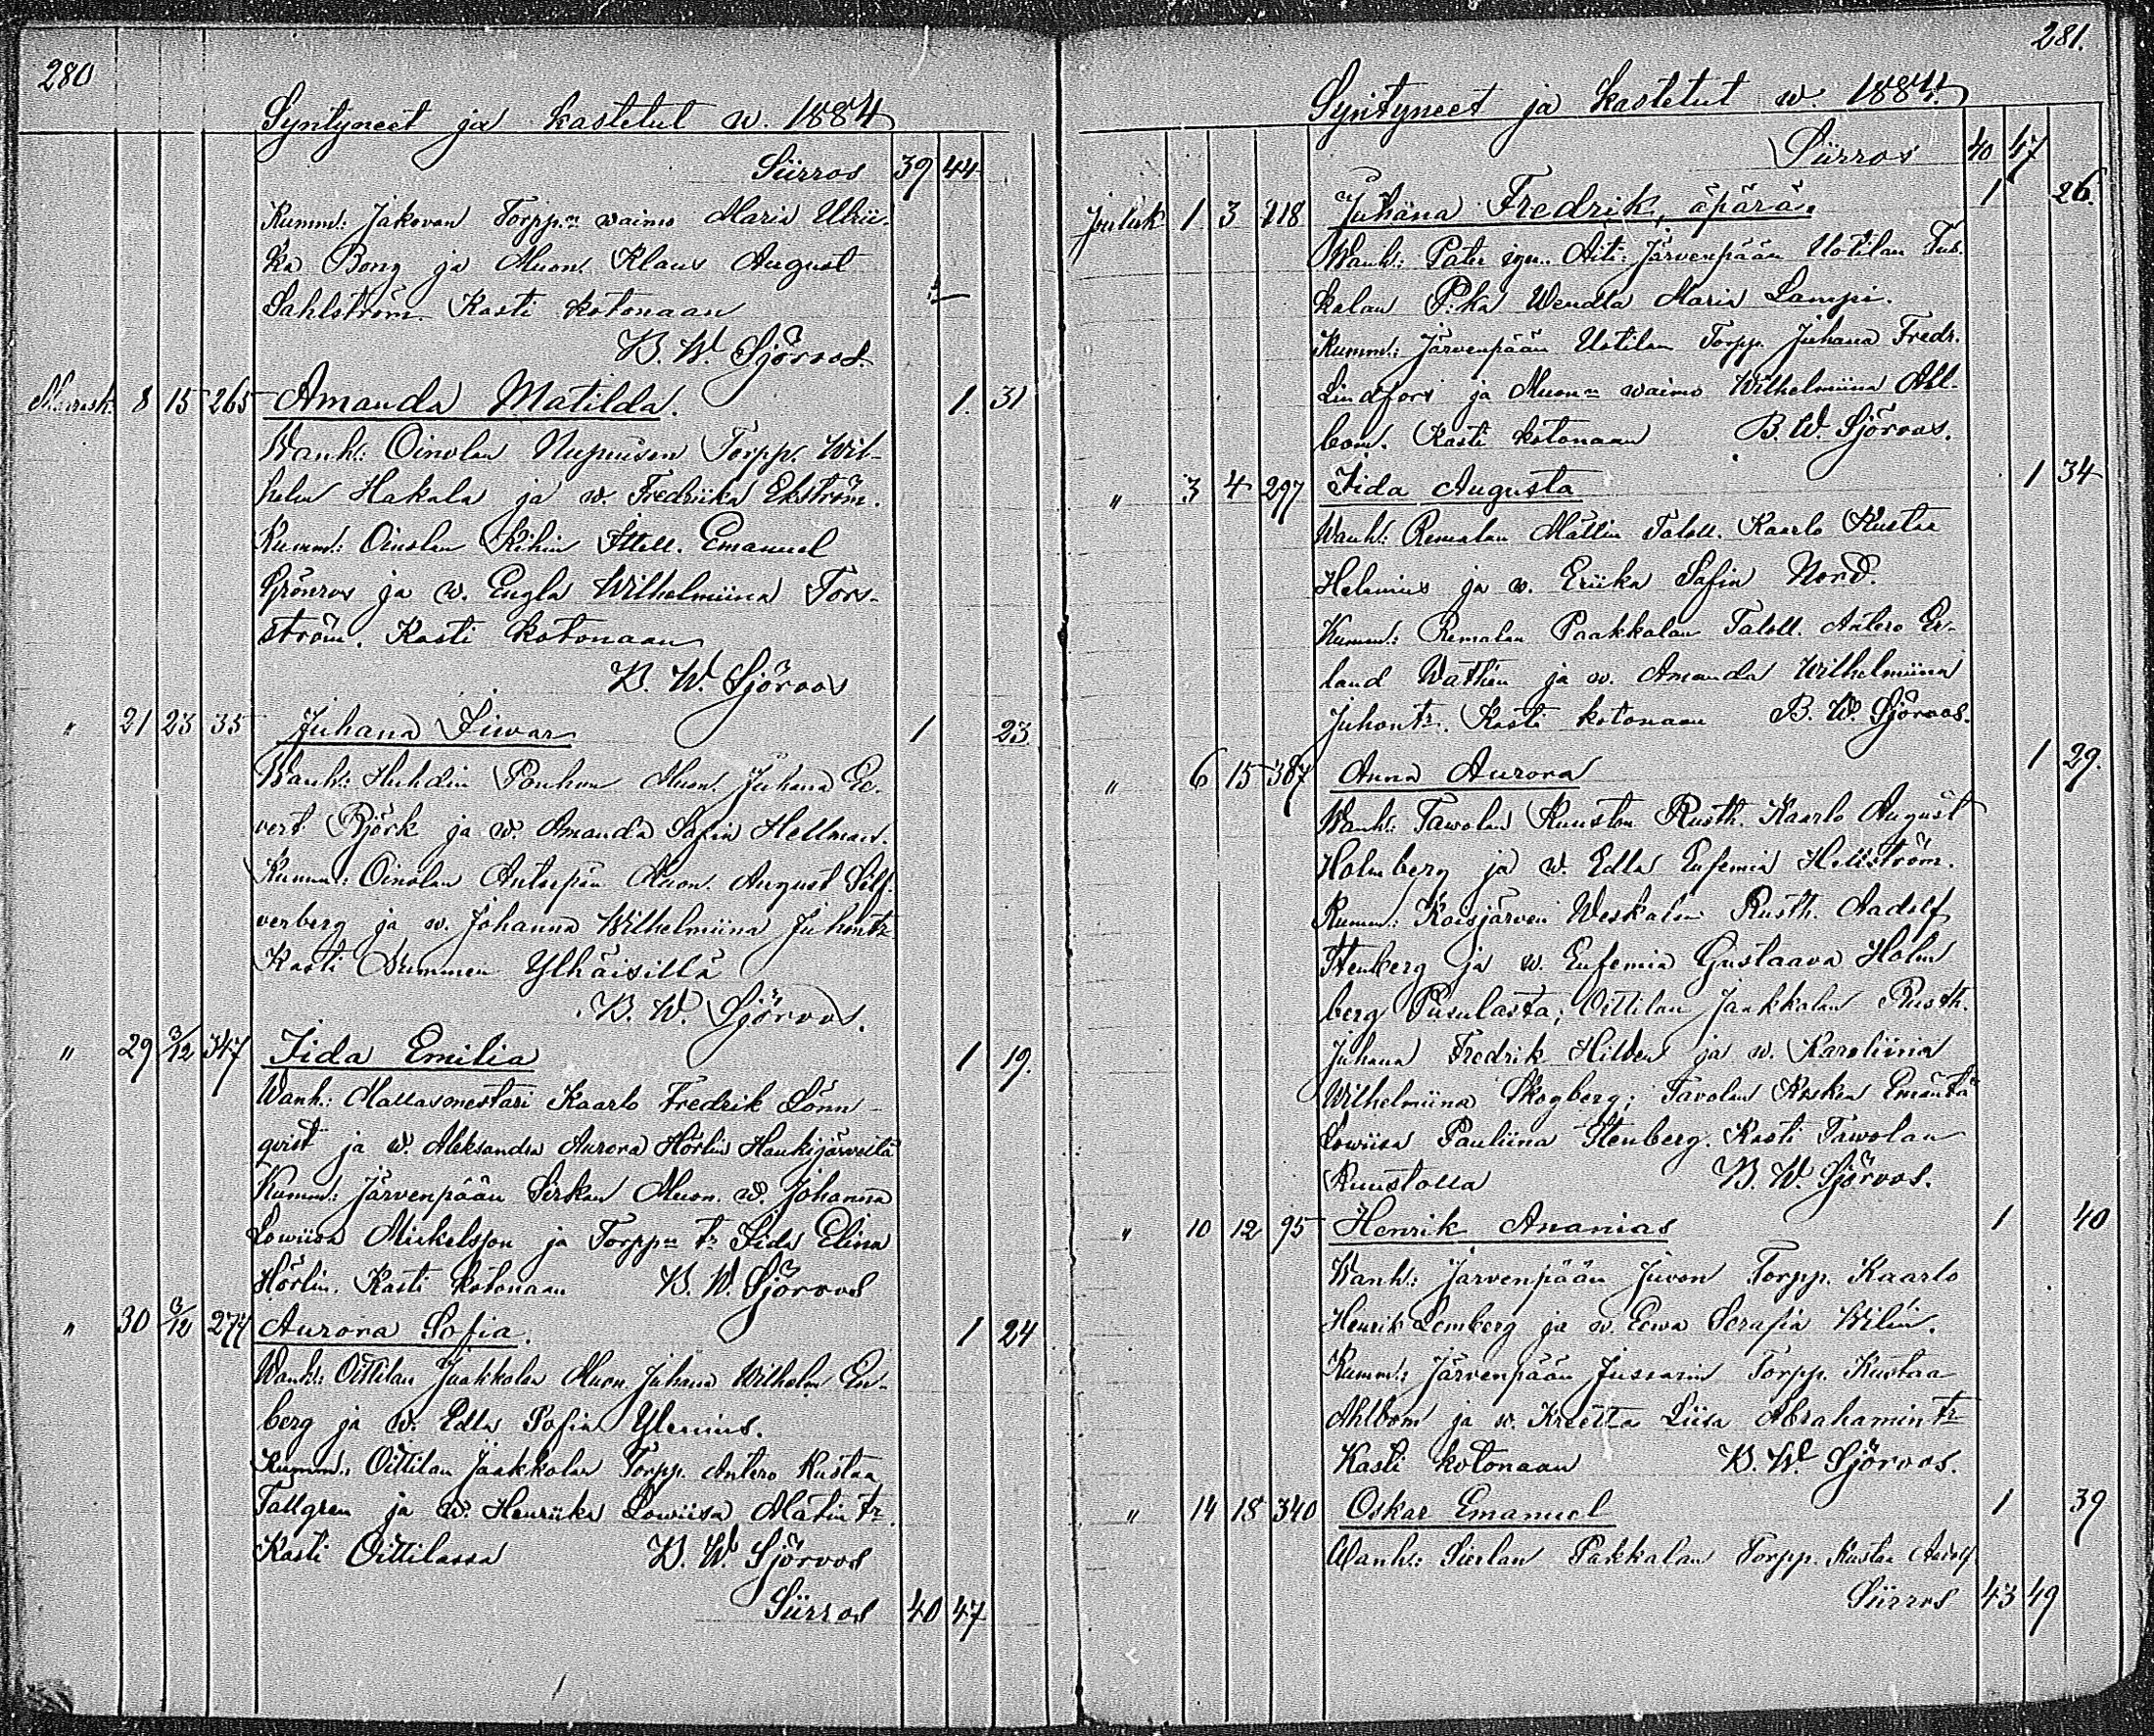 280
Syntyneet ja kastetut w. 1884
Siirros 39 44
Kumm: Jakovan Torpp:n waimo Maria Ulrii-
ka Bong ja Muon. Klaus August
Sahlström. Kasti kotonaan
B. W. Sjöroos.
Marrask. 8 15 265 Amanda Matilda. 1. 31
Wanh: Oinolan Torpp. Wil-
helm Hakala ja w. Fredriika Ekström.
Kumm: Oinolan Itsell. Emanuel
Grönros ja w. Engla Wilhelmiina Fors-
ström. Kasti kotonaan
B. W. Sjöroos
" 21 23 35 Juhana Iiwar 1 23
Wanh: Huhdin Pouhon Muon. Juhana Ed-
vert Björk ja w. Amanda Sofia Hellman.
Kumm: Oinolan Muon. August Silf-
verberg ja w. Johanna Wilhelmiina Juhontr
Kasti Ylhäisillä
B. W. Sjöroos.
" 29 3/12 347 Iida Emilia 1 19.
Wanh: Kaarlo Fredrik Lönn-
qvist ja w. Aleksandra Aurora Hörlin Haukijärveltä
Kumm: Järvenpään Sirkan Muon. w. Johanna
Lowiisa Mickelsson ja Torpp:n tr Iida Elina
Hörlin. Kasti kotonaan B. W. Sjöroos
" 30 3/12 277 Aurora Sofia. 1 24
Wanh: Oittilan Jaakkolan Muon. Juhana Wilhelm En-
berg ja w. Edla Sofia Ylenius.
Kumm: Oittilan Jaakkolan Torpp. Antero Kustaa
Tallgren ja w. Henriika Lowiisa Matintr.
Kasti Oittilassa B. W. Sjöroos
Siirros 40 47
281.
Syntyneet ja kastetut w. 1884.
Siirros 40 47
Jouluk 1 3 218 Juhana Fredrik, äpärä. 1 26.
Wanh: Pater ign. Äiti: Järvenpään Uotilan Tuk-
kalan P:ka Wendla Maria Lampi.
Kumm: Järvenpään Uotilan Torpp. Juhana Fredr.
Lindfors ja Muon:n waimo Wilhelmiina Ahl-
bom. Kasti kotonaan B. W. Sjöroos.
" 3 4 297 Iida Augusta 1 34
Wanh: Remalan Mattin Taloll. Kaarlo Kustaa
Helenius ja w. Eriika Sofia Nord.
Kumm: Remalan Paakkalan Taloll. Antero Er-
land Wathén ja w. Amanda Wilhelmiina
Juhontr. Kasti kotonaan B. W. Sjöroos.
" 6 15 387 Anna Aurora 1 29.
Wanh: Tawolan Kuuston Rusth. Kaarlo August
Holmberg ja w. Edla Eufemia Hellström.
Kumm: Koisjärven Weskalan Rusth. Aadolf
Stenberg ja w. Eufemia Gustaava Holm
berg Pusulasta; Oittilan Jaakkolan Rusth.
Juhana Fredrik Hildén ja w. Karoliina
Wilhelmiina Skogberg; Tavolan Kosken Emäntä
Lowiisa Pauliina Stenberg. Kasti Tawolan
Kuustolla B. W. Sjöroos.
" 10 12 95 Henrik Ananias 1 40
Wanh: Järvenpään Juvon Torpp. Kaarlo
Henrik Lemberg ja w. Eewa Serafia Wilén.
Kumm: Järvenpään Jussarin Torpp. Kustaa
Ahlbom ja w. Kreetta Liisa Abrahamintr
Kasti kotonaan B. W. Sjöroos.
" 14 18 340 Oskar Emanuel 1 39
Wanh: Sierlan Pakkalan Torpp. Kustaa Adolf
Siirros 43 49